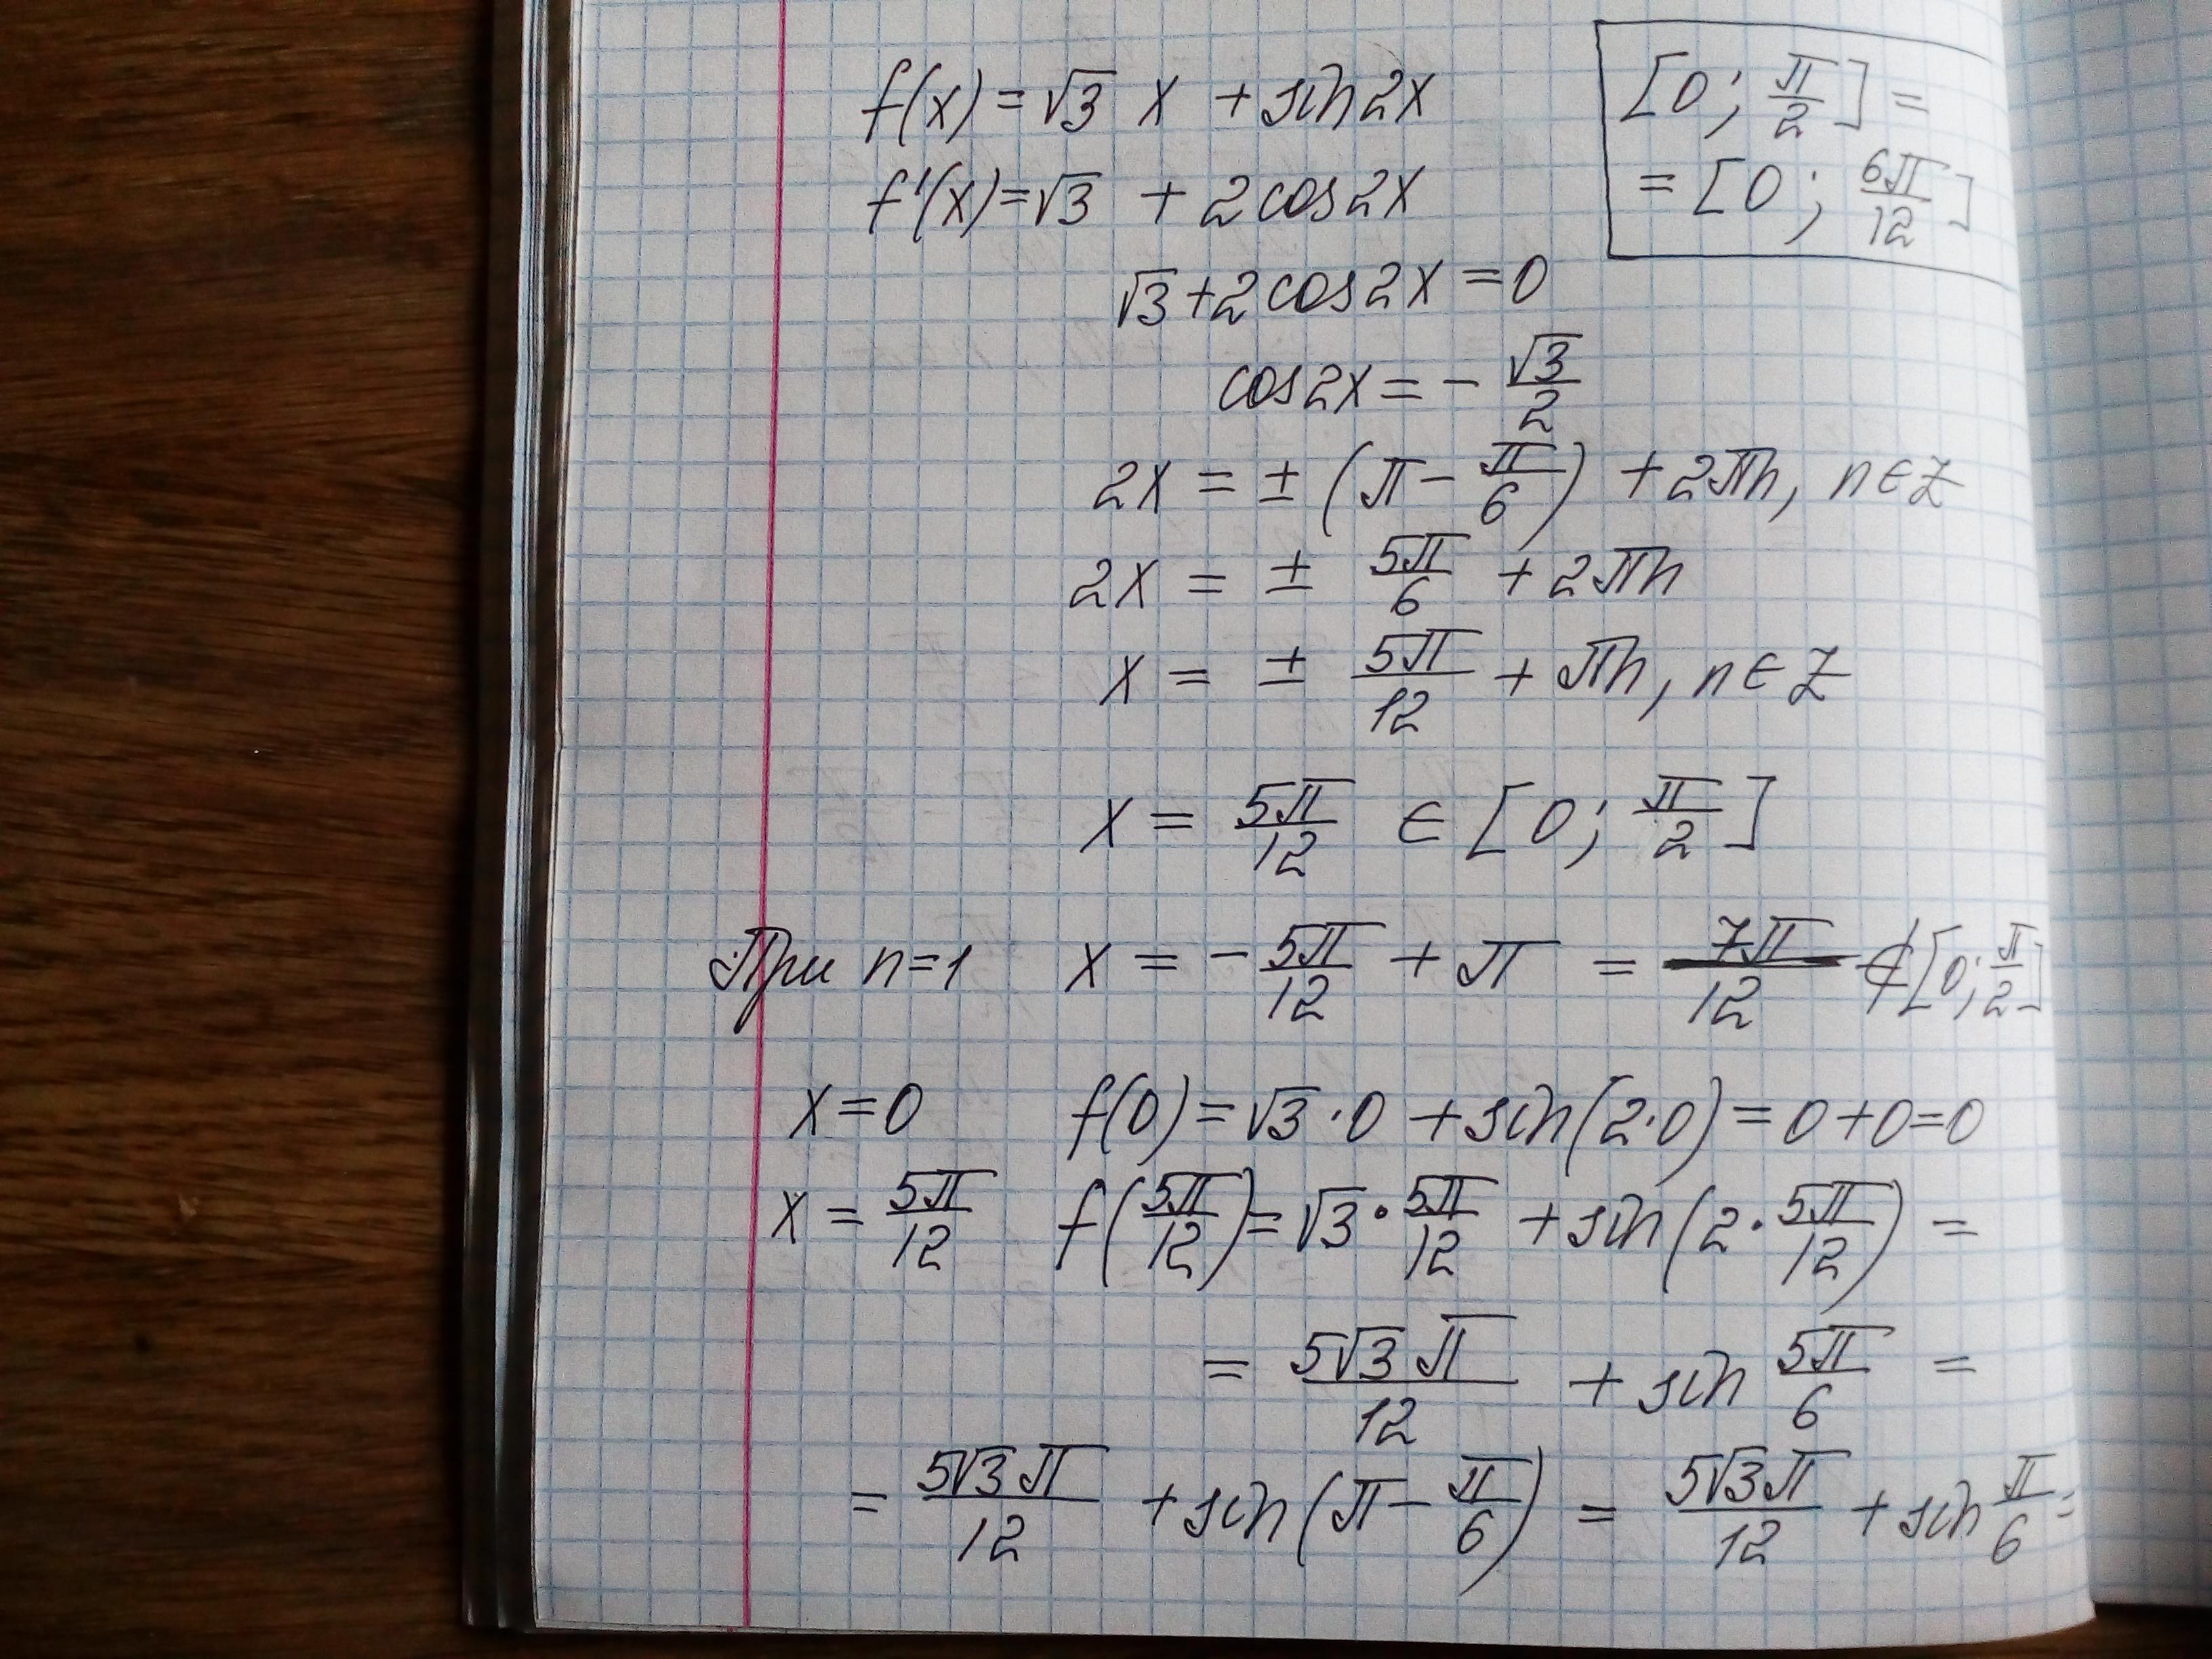 f(x) = √3 x + sin2x
[0; π/2] =
= [0; 6π/12]
f'(x) = √3 + 2cos2x
√3 + 2cos2x = 0
cos2x = - √3/2
2x = ± (π - π/6) + 2πn, n∈Z
2x = ± 5π/6 + 2πn
x = ± 5π/12 + πn, n∈Z
x = 5π/12 ∈ [0; π/2]
При n=1 x = - 5π/12 + π = 7π/12 ∉ [0; π/2]
x=0 f(0) = √3·0 + sin(2·0) = 0+0=0
x = 5π/12 f(5π/12) = √3 · 5π/12 + sin(2· 5π/12) =
= 5√3π/12 + sin 5π/6 =
= 5√3π/12 + sin(π - π/6) = 5√3π/12 + sin π/6 =